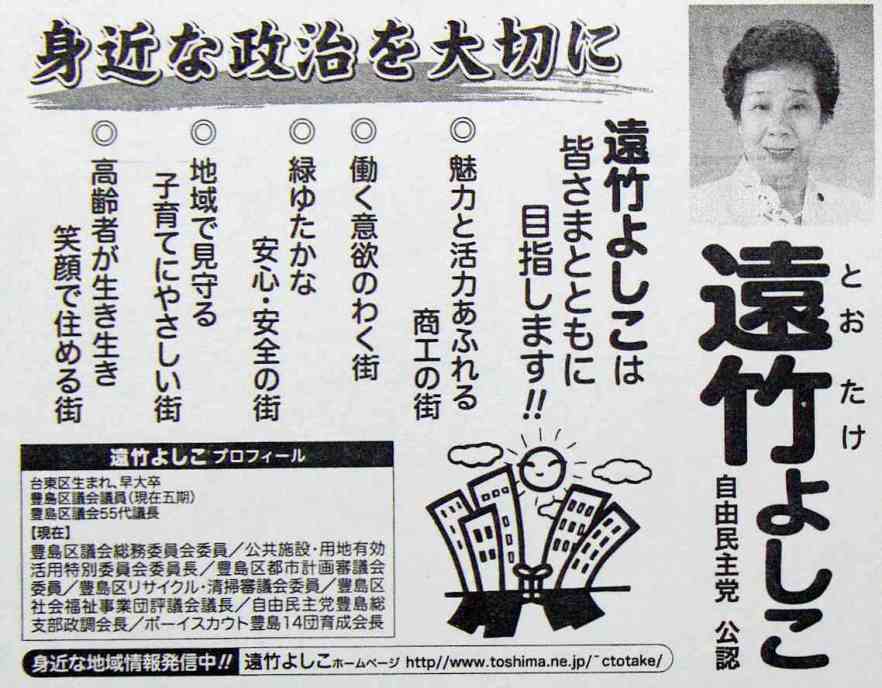 身近な政治を大切に
とおたけ
遠竹よしこ
自由民主党 公認
遠竹よしこは
皆さまとともに
目指します!!
◎魅力と活力あふれる
商工の街
◎働く意欲のわく街
◎緑ゆたかな
安心・安全の街
◎地域で見守る
子育てにやさしい街
◎高齢者が生き生き
笑顔で住める街
遠竹よしこ プロフィール
台東区生まれ、早大卒
豊島区議会議員(現在五期)
豊島区議会55代議長
【現在】
豊島区議会総務委員会委員/公共施設・用地有効
活用特別委員会委員長/豊島区都市計画審議会
委員/豊島区リサイクル・清掃審議会委員/豊島区
社会福祉事業団評議会議長/自由民主党豊島総
支部政調会長/ボーイスカウト豊島14団育成会長
身近な地域情報発信中!! 遠竹よしこホームページ http//www.toshima.ne.jp/~ctotake/